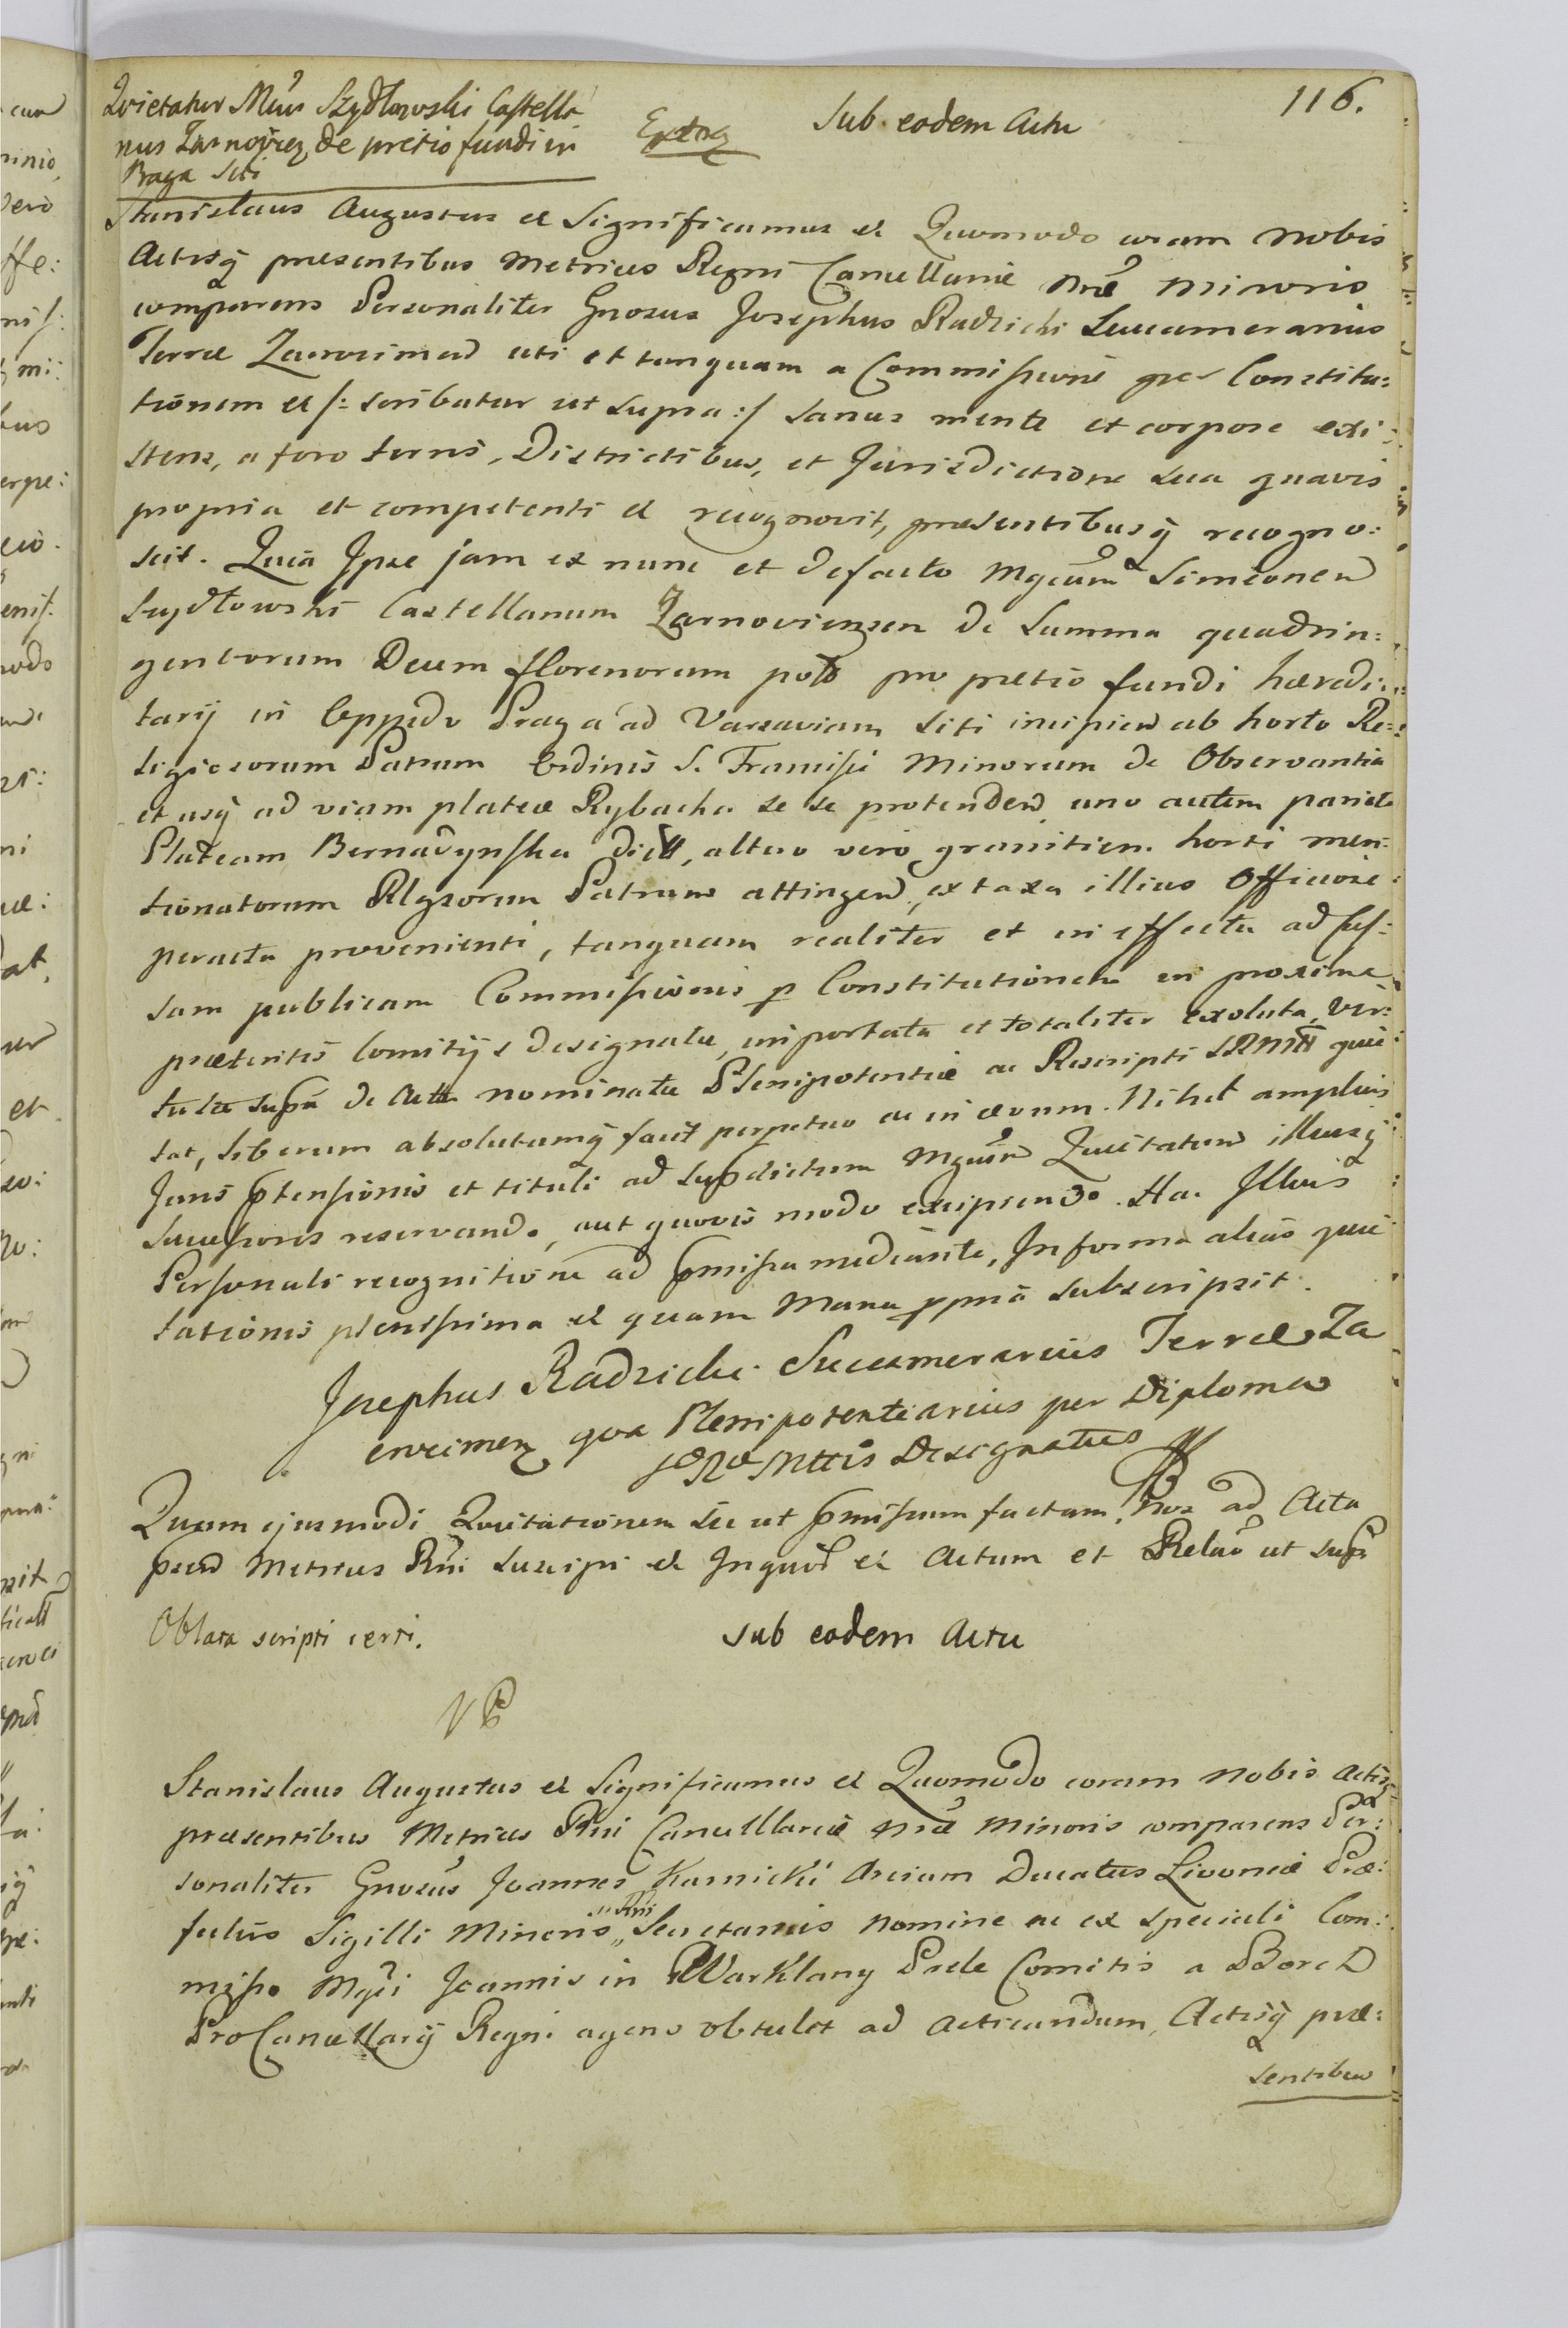 116.
Quietatur Mcus Szydłowski Castella
nus Żarnowien de pretio fundi in
Praga siti
Extra
Sub eodem Actu
Stanislaus Augustus et Significamus et Quomodo coram Nobis
Actisq presentibus Metrices Regni Cancellariæ Nræ Minoris
comparens Personaliter Gnosus Josephus Radzicki Succamerarius
Terræ Zacrocimen uti et tanquam a Commissione per Constitu:
tionem et /: scribatur ut supra :/ sanus mente et corpore exi:
stens, a foro terris, Districtibus, et Jurisdictione sua quavis
propria et competenti et recognovit, præsentibusq recogno:
scit. Quia Ipse jam ex nunc et defacto Mgcum Simeonem
Szydłowski Castellanum Zarnoviensem de Summa quadrin:
gentorum Decem florenorum pol pro pretio fundi hæredi:
tarij in Oppido Praga ad Varsaviam siti incipien ab horto Re:
ligiosorum Patrum Ordinis S. Francisci Minorum de Observantia
et usq ad viam plateæ Rybacka se se protenden uno autem pariete
Plateam Bernadynska dictt, altero vero granitiem horti men:
tionatorum Rlgsorum Patrum attingen, ex taxa illius Officiose
peracta provenienti, tanquam realiter et in effectu ad Cas:
sam publicam Commissionis p Constitutionem in proxime
præteritis Comitijs designatæ, importata et totaliter exoluta, vir:
tute supra de Actu nominatæ Plenipotentiæ ac Rescripti SRMttis quie:
tat, liberum absolutumq facit perpetuo ac in ævum. Nihil amplius
Juris ptensionis et tituli ad supdictum Mgcum Quietatum illiusq
Successores reservando, aut quovis modo excipiendo. Hac Illius
Personali recognitione ad pmissa mediante, In forma alias quie
tationis plenissima et quam Manu ppria subscripsit.
Josephus Radzicki Succamerarius Terræ Za
crocimen qua Plenipotentiarius per Diploma
SæRæMttis Designatus
Quam ejusmodi Quietationem sic ut pmissum factam Nos ad Acta
psen Metrices Rni suscipi et Ingross et Actum et Relao ut supra
Oblata scripti certi.
Sub eodem Actu
Stanislaus Augustus et Significamus et Quomodo coram Nobis Actisq
præsentibus Metrices Rni Cancellariæ Nræ Minoris comparens Per:
sonaliter Gnosus Joannes Karnicki Arcium Ducatus Livoniæ Præ:
fectus Sigilli Minoris „Rni Secretarius nomine ac ex speciali Com:
misso Mgci Joannis in Warklany Prele Comitis a Borch
ProCancellarij Regni agens obtulit ad acticandum, Actisq præ:
sentibus